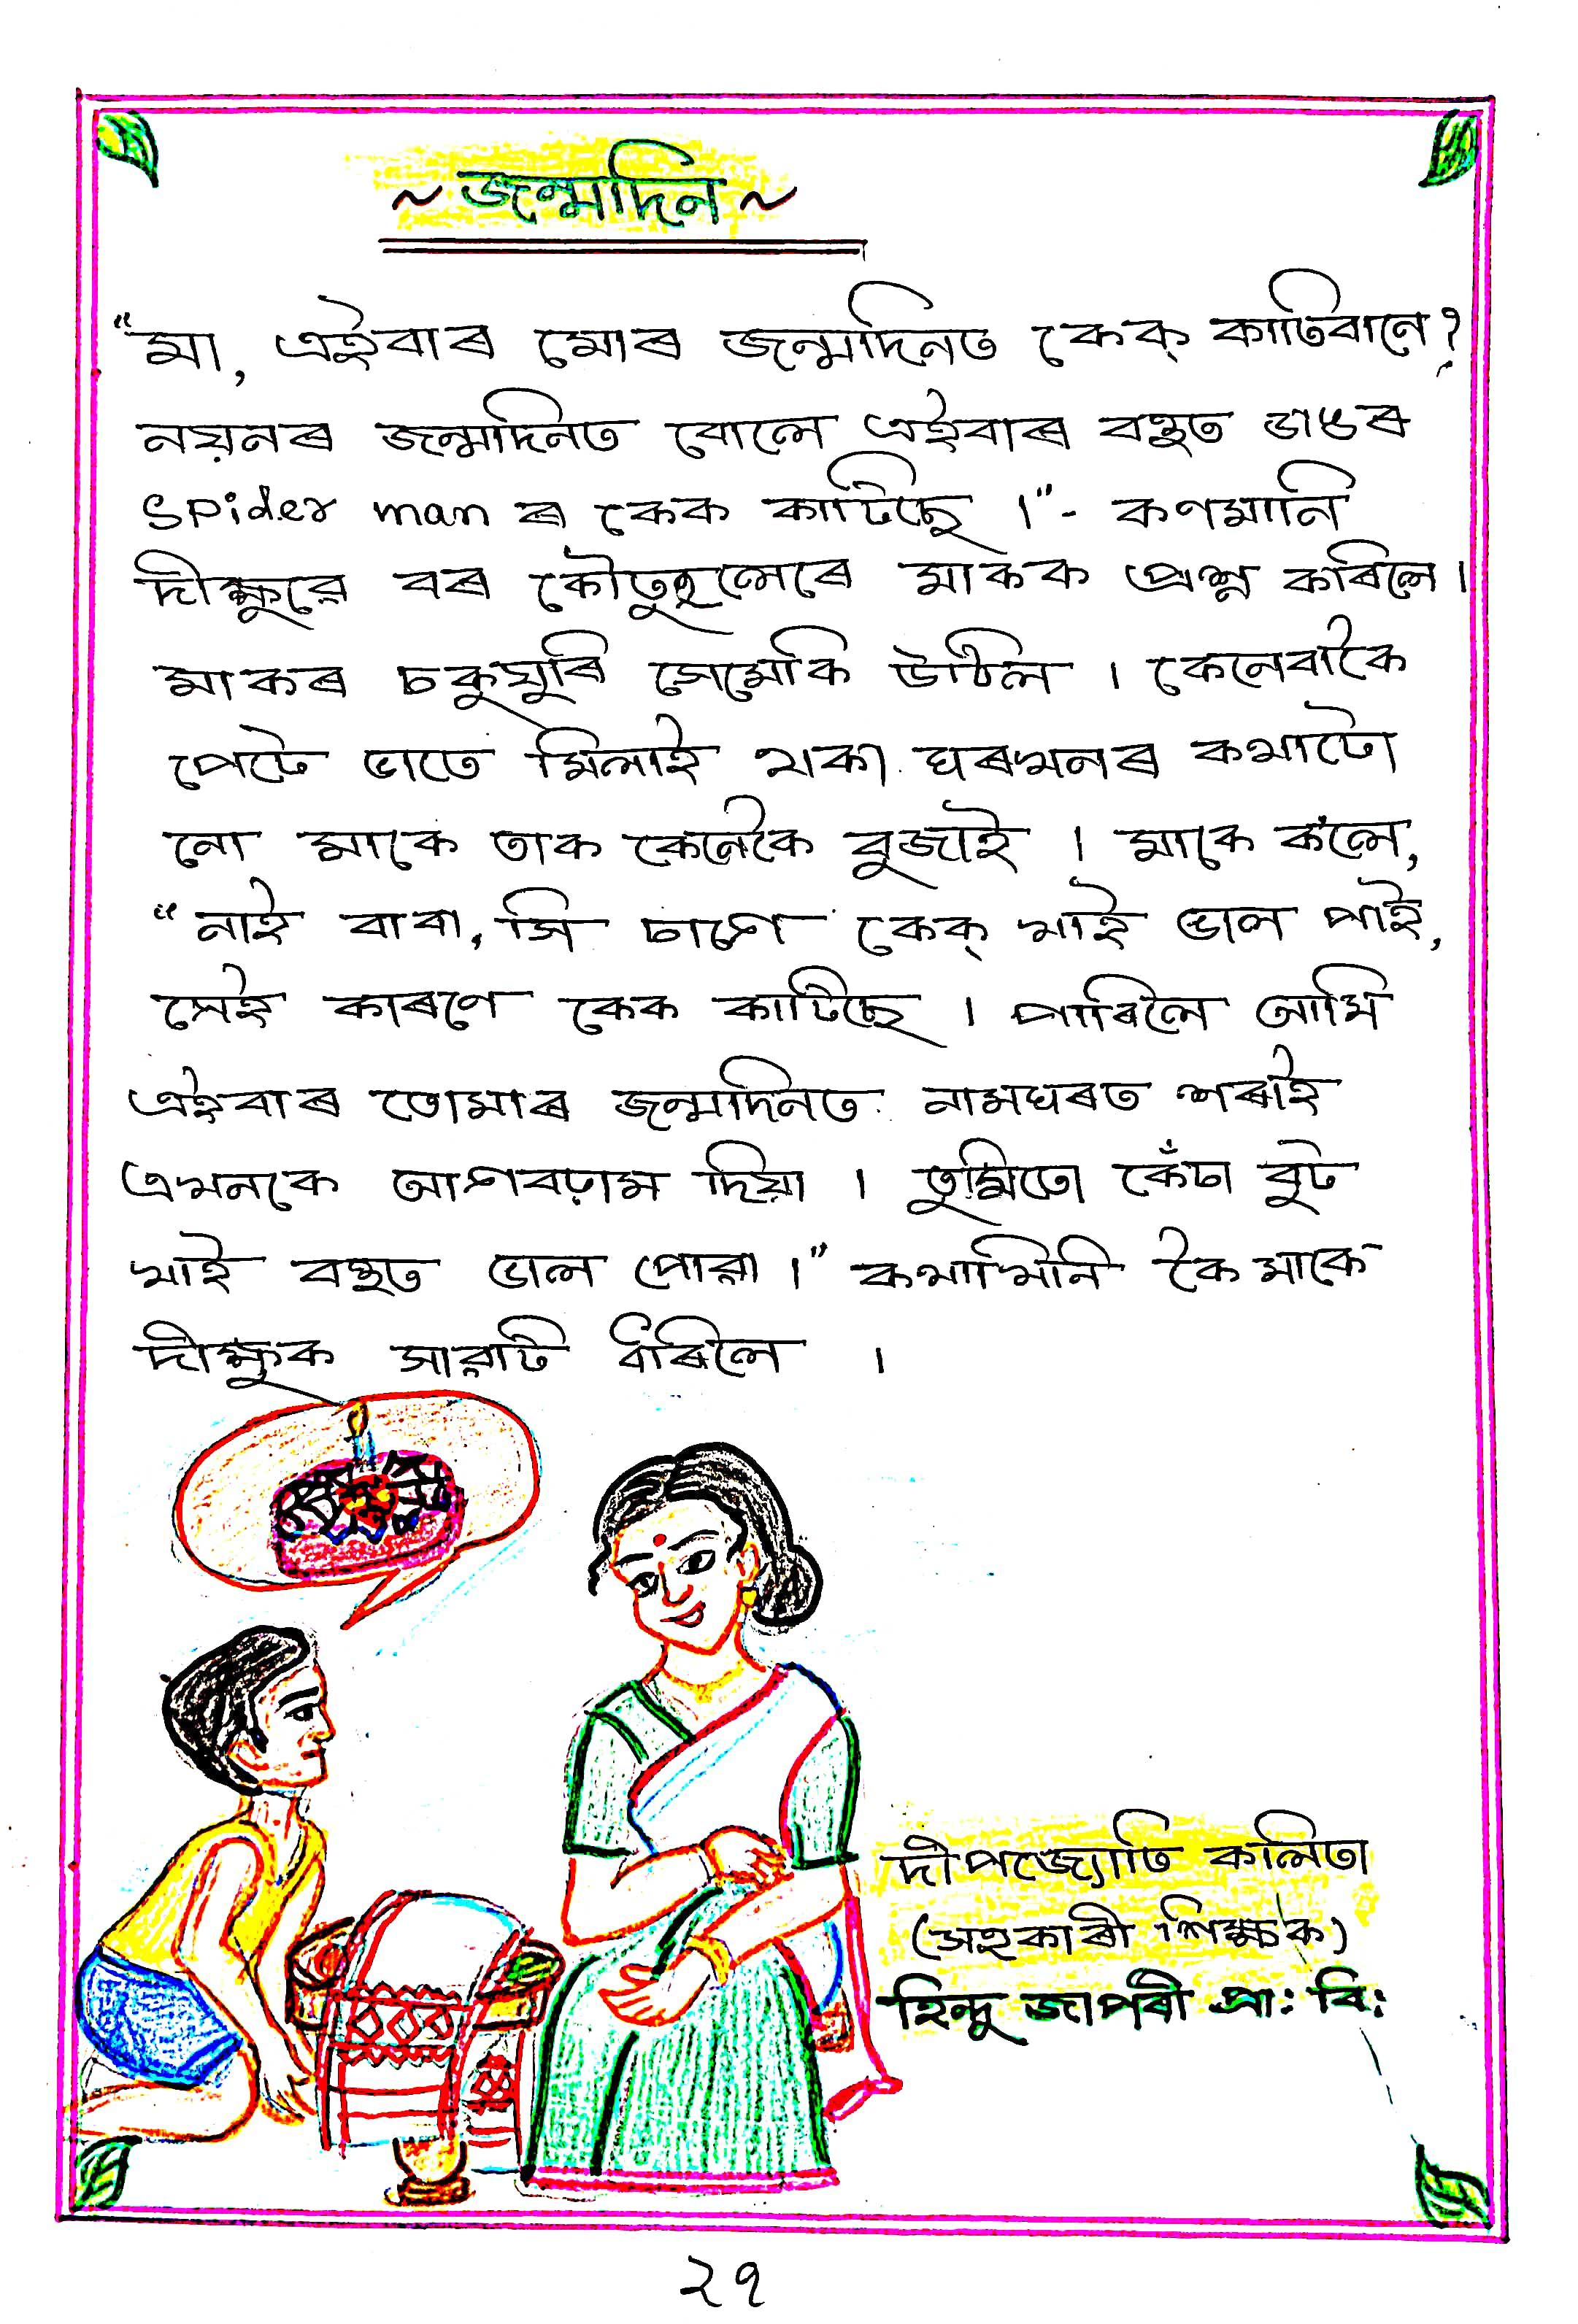 ~ জন্মদিন ~
"মা, এইবাৰ মোৰ জন্মদিনত কেক্ কাটিবানে?
নয়নৰ জন্মদিনত বোলে এইবাৰ বহুত ডাঙৰ
spider man ৰ কেক কাটিছে ।"- কণমানি
দীক্ষুৱে বৰ কৌতুহলেৰে মাকক প্ৰশ্ন কৰিলে।
মাকৰ চকুযুৰি সেমেকি উঠিল । কেনেবাকৈ
পেটে ভাতে মিলাই থকা ঘৰখনৰ কথাটো
নো মাকে তাক কেনেকৈ বুজাই । মাকে ক'লে,
"নাই বাবা, সি চাগে কেক্ খাই ভাল পাই,
সেই কাৰণে কেক কাটিছে । পাৰিলে আমি
এইবাৰ তোমাৰ জন্মদিনত নামঘৰত শৰাই
এখনকে আগবঢ়াম দিয়া । তুমিতো কেঁচা বুট
খাই বহুত ভাল পোৱা ।" কথাখিনি কৈ মাকে
দীক্ষুক সাৱটি ধৰিলে ।
দীপজ্যোতি কলিতা
(সহকাৰী শিক্ষক)
হিন্দু জাপৰী প্ৰা: বি:
২৭